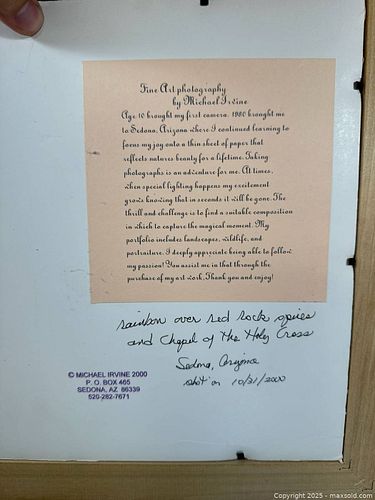 Fine Art photography
by Michael Irvine
Age 10 brought my first camera. 1980 brought me
to Sedona, Arizona where I continued learning to
focus my joy onto a thin sheet of paper that
reflects natures beauty for a lifetime. Taking
photographs is an adventure for me. At times,
when special lighting happens my excitement
grows knowing that in seconds it will be gone. The
thrill and challenge is to find a suitable composition
in which to capture the magical moment. My
portfolio includes landscapes, wildlife, and
portraiture. I deeply appreciate being able to follow
my passion! You assist me in that through the
purchase of my art work. Thank you and enjoy!
rainbow over red rock spires
and Chapel of The Holy Cross
Sedona, Arizona
shot on 10/21/2000
© MICHAEL IRVINE 2000
P. O. BOX 465
SEDONA, AZ 86339
520-282-7671
Copyright 2025 - maxsold.com